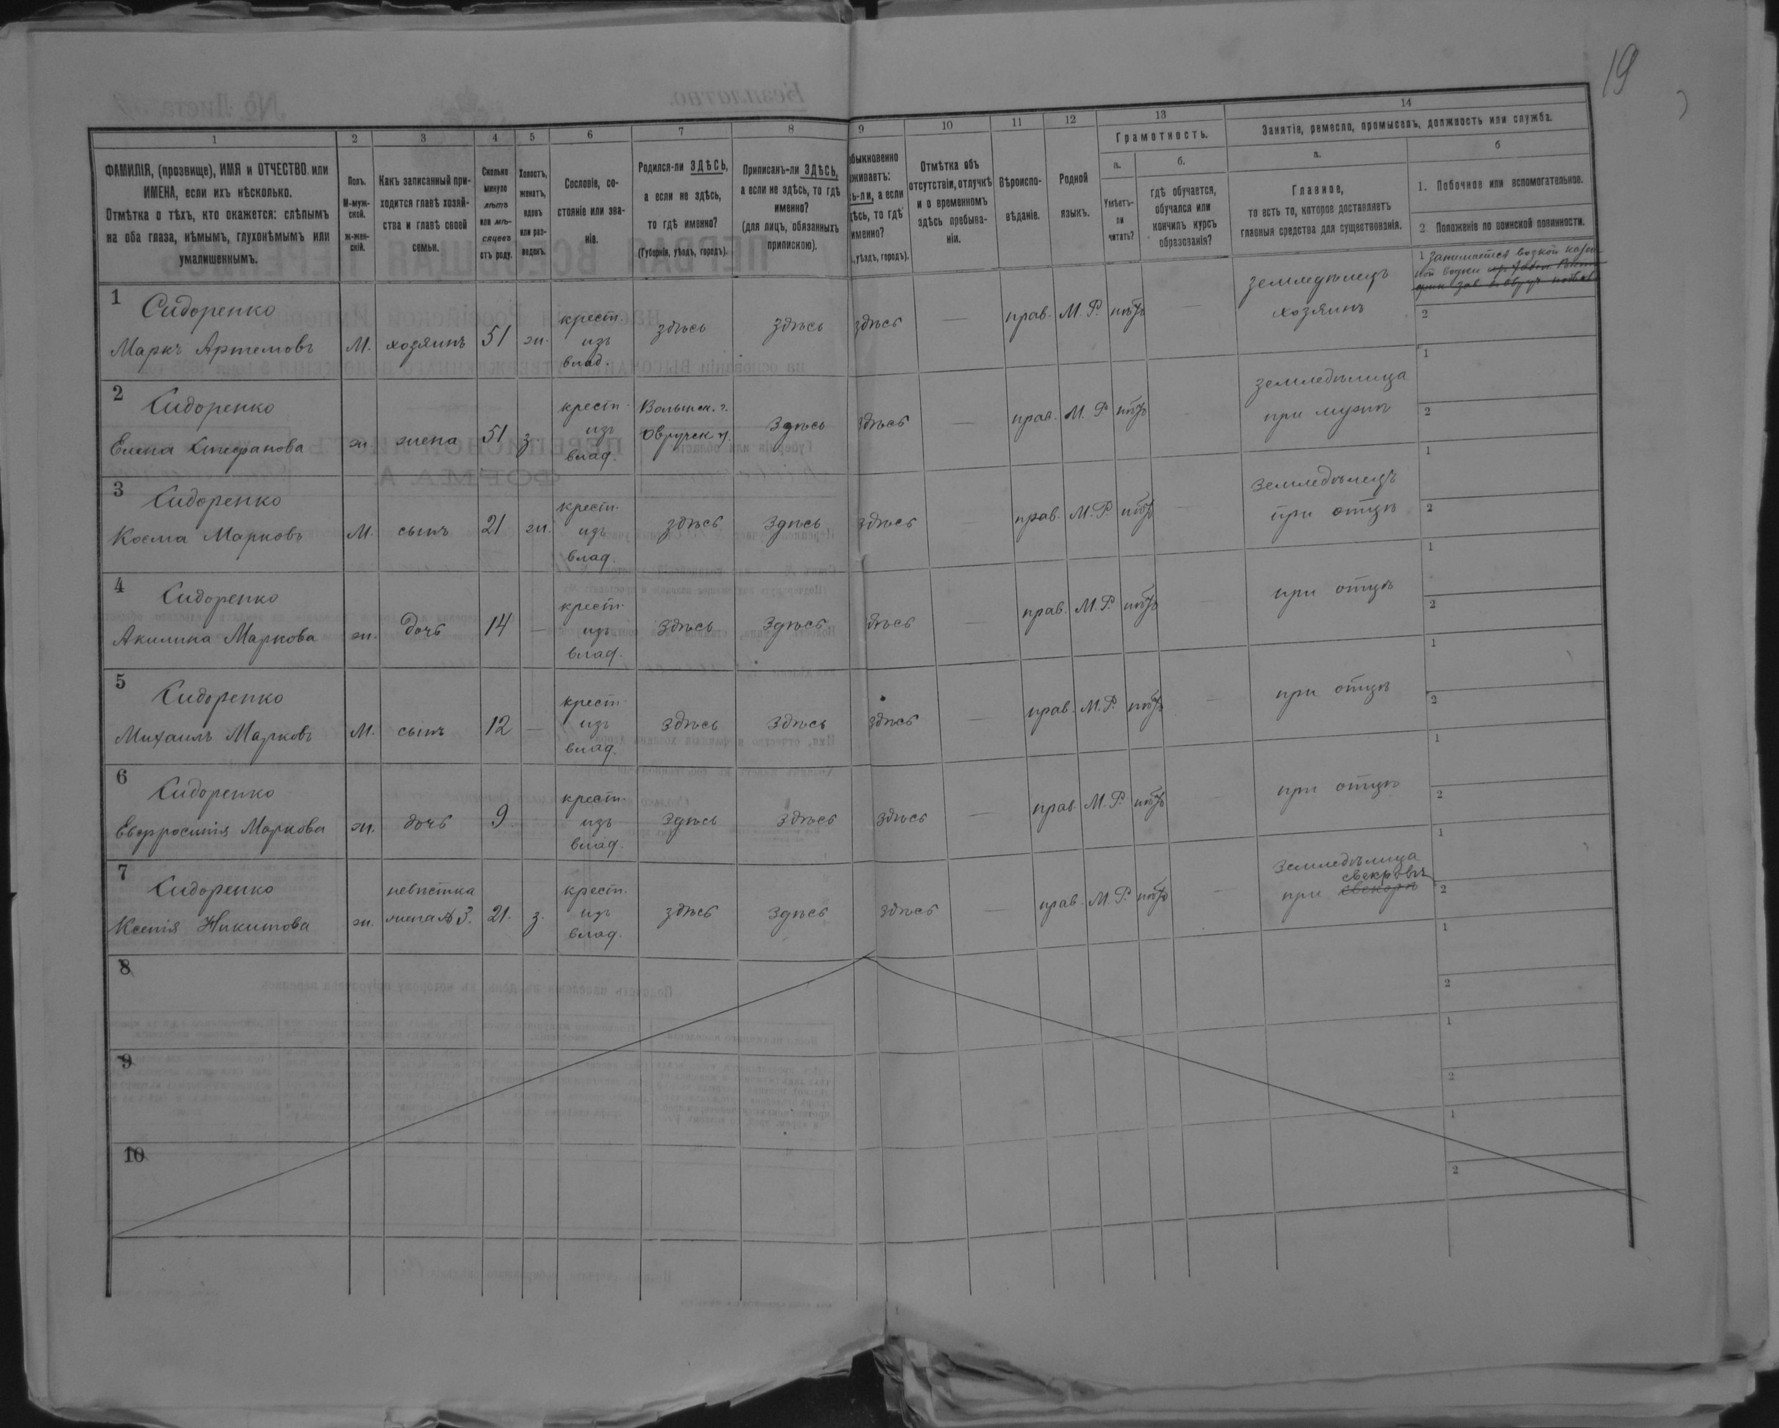 19
1 2 3 4 5 6 7 8 9 10 11 12 13 14
ФАМИЛІЯ, (прозвище), ИМЯ и ОТЧЕСТВО или ИМЕНА, если ихъ нѣсколько.
Отмѣтка о тѣхъ, кто окажется: слѣпымъ на оба глаза, нѣмымъ, глухонѣмымъ или умалишеннымъ.
Полъ. М-муж-ской. ж-жен-скій.
Какъ записанный при-ходится главѣ хозяй-ства и главѣ своей семьи.
Сколько минуло лѣтъ или мѣ-сяцевъ отъ роду.
Холостъ, женатъ, вдовъ или раз-веденъ.
Сословіе, со-стояніе или зва-ніе.
Родился-ли ЗДѢСЬ, а если не здѣсь, то гдѣ именно?
(Губернія, уѣздъ, городъ).
Приписанъ-ли ЗДѢСЬ, а если не здѣсь, то гдѣ именно?
(для лицъ, обязанныхъ припискою).
быкновенно
оживаетъ:
ь-ли, а если
дѣсь, то гдѣ
именно?
, уѣздъ, городъ).
Отмѣтка объ отсутствіи, отлучкѣ и о временномъ здѣсь пребыва-ніи.
Вѣроиспо-вѣданіе.
Родной языкъ.
Грамотность.
а.
Умѣетъ-ли читать?
б.
гдѣ обучается, обучался или кончилъ курсъ образованія?
Занятія, ремесло, промыселъ, должность или служба.
а.
Главное,
то есть то, которое доставляетъ главныя средства для существованія.
б
1. Побочное или вспомогательное.
2 Положеніе по воинской повинности.
1 Сидоренко
Маркъ Артемовъ М. хозяинъ 51 ж. крест. изъ влад. здѣсь здѣсь здѣсь — прав. М. Р. нѣтъ — земледѣлецъ хозяинъ 1 Занимается возкой 2
2 Сидоренко
Елена Стефанова ж. жена 51 з. крест. изъ влад. Волынск. г. Овручск у. здѣсь здѣсь — прав. М. Р. нѣтъ — земледѣлица при мужѣ 1 2
3 Сидоренко
Косма Марковъ М. сынъ 21 ж. крест. изъ влад. здѣсь здѣсь здѣсь — прав. М. Р. нѣтъ — земледѣлецъ при отцѣ 1 2
4 Сидоренко
Акилина Маркова ж. дочь 14 — крест. изъ влад. здѣсь здѣсь здѣсь — прав. М. Р. нѣтъ — при отцѣ 1 2
5 Сидоренко
Михаилъ Марковъ М. сынъ 12 — крест. изъ влад. здѣсь здѣсь здѣсь — прав. М. Р. нѣтъ — при отцѣ 1 2
6 Сидоренко
Евфросинія Маркова ж. дочь 9 крест. изъ влад. здѣсь здѣсь здѣсь — прав. М. Р. нѣтъ — при отцѣ 1 2
7 Сидоренко
Ксенія Никитова ж. невѣстка жена № 3. 21. з. крест. изъ влад. здѣсь здѣсь здѣсь — прав. М. Р. нѣтъ — земледѣлица при свекоръ свекровѣ 1 2
8 1 2
9 1 2
10 1 2